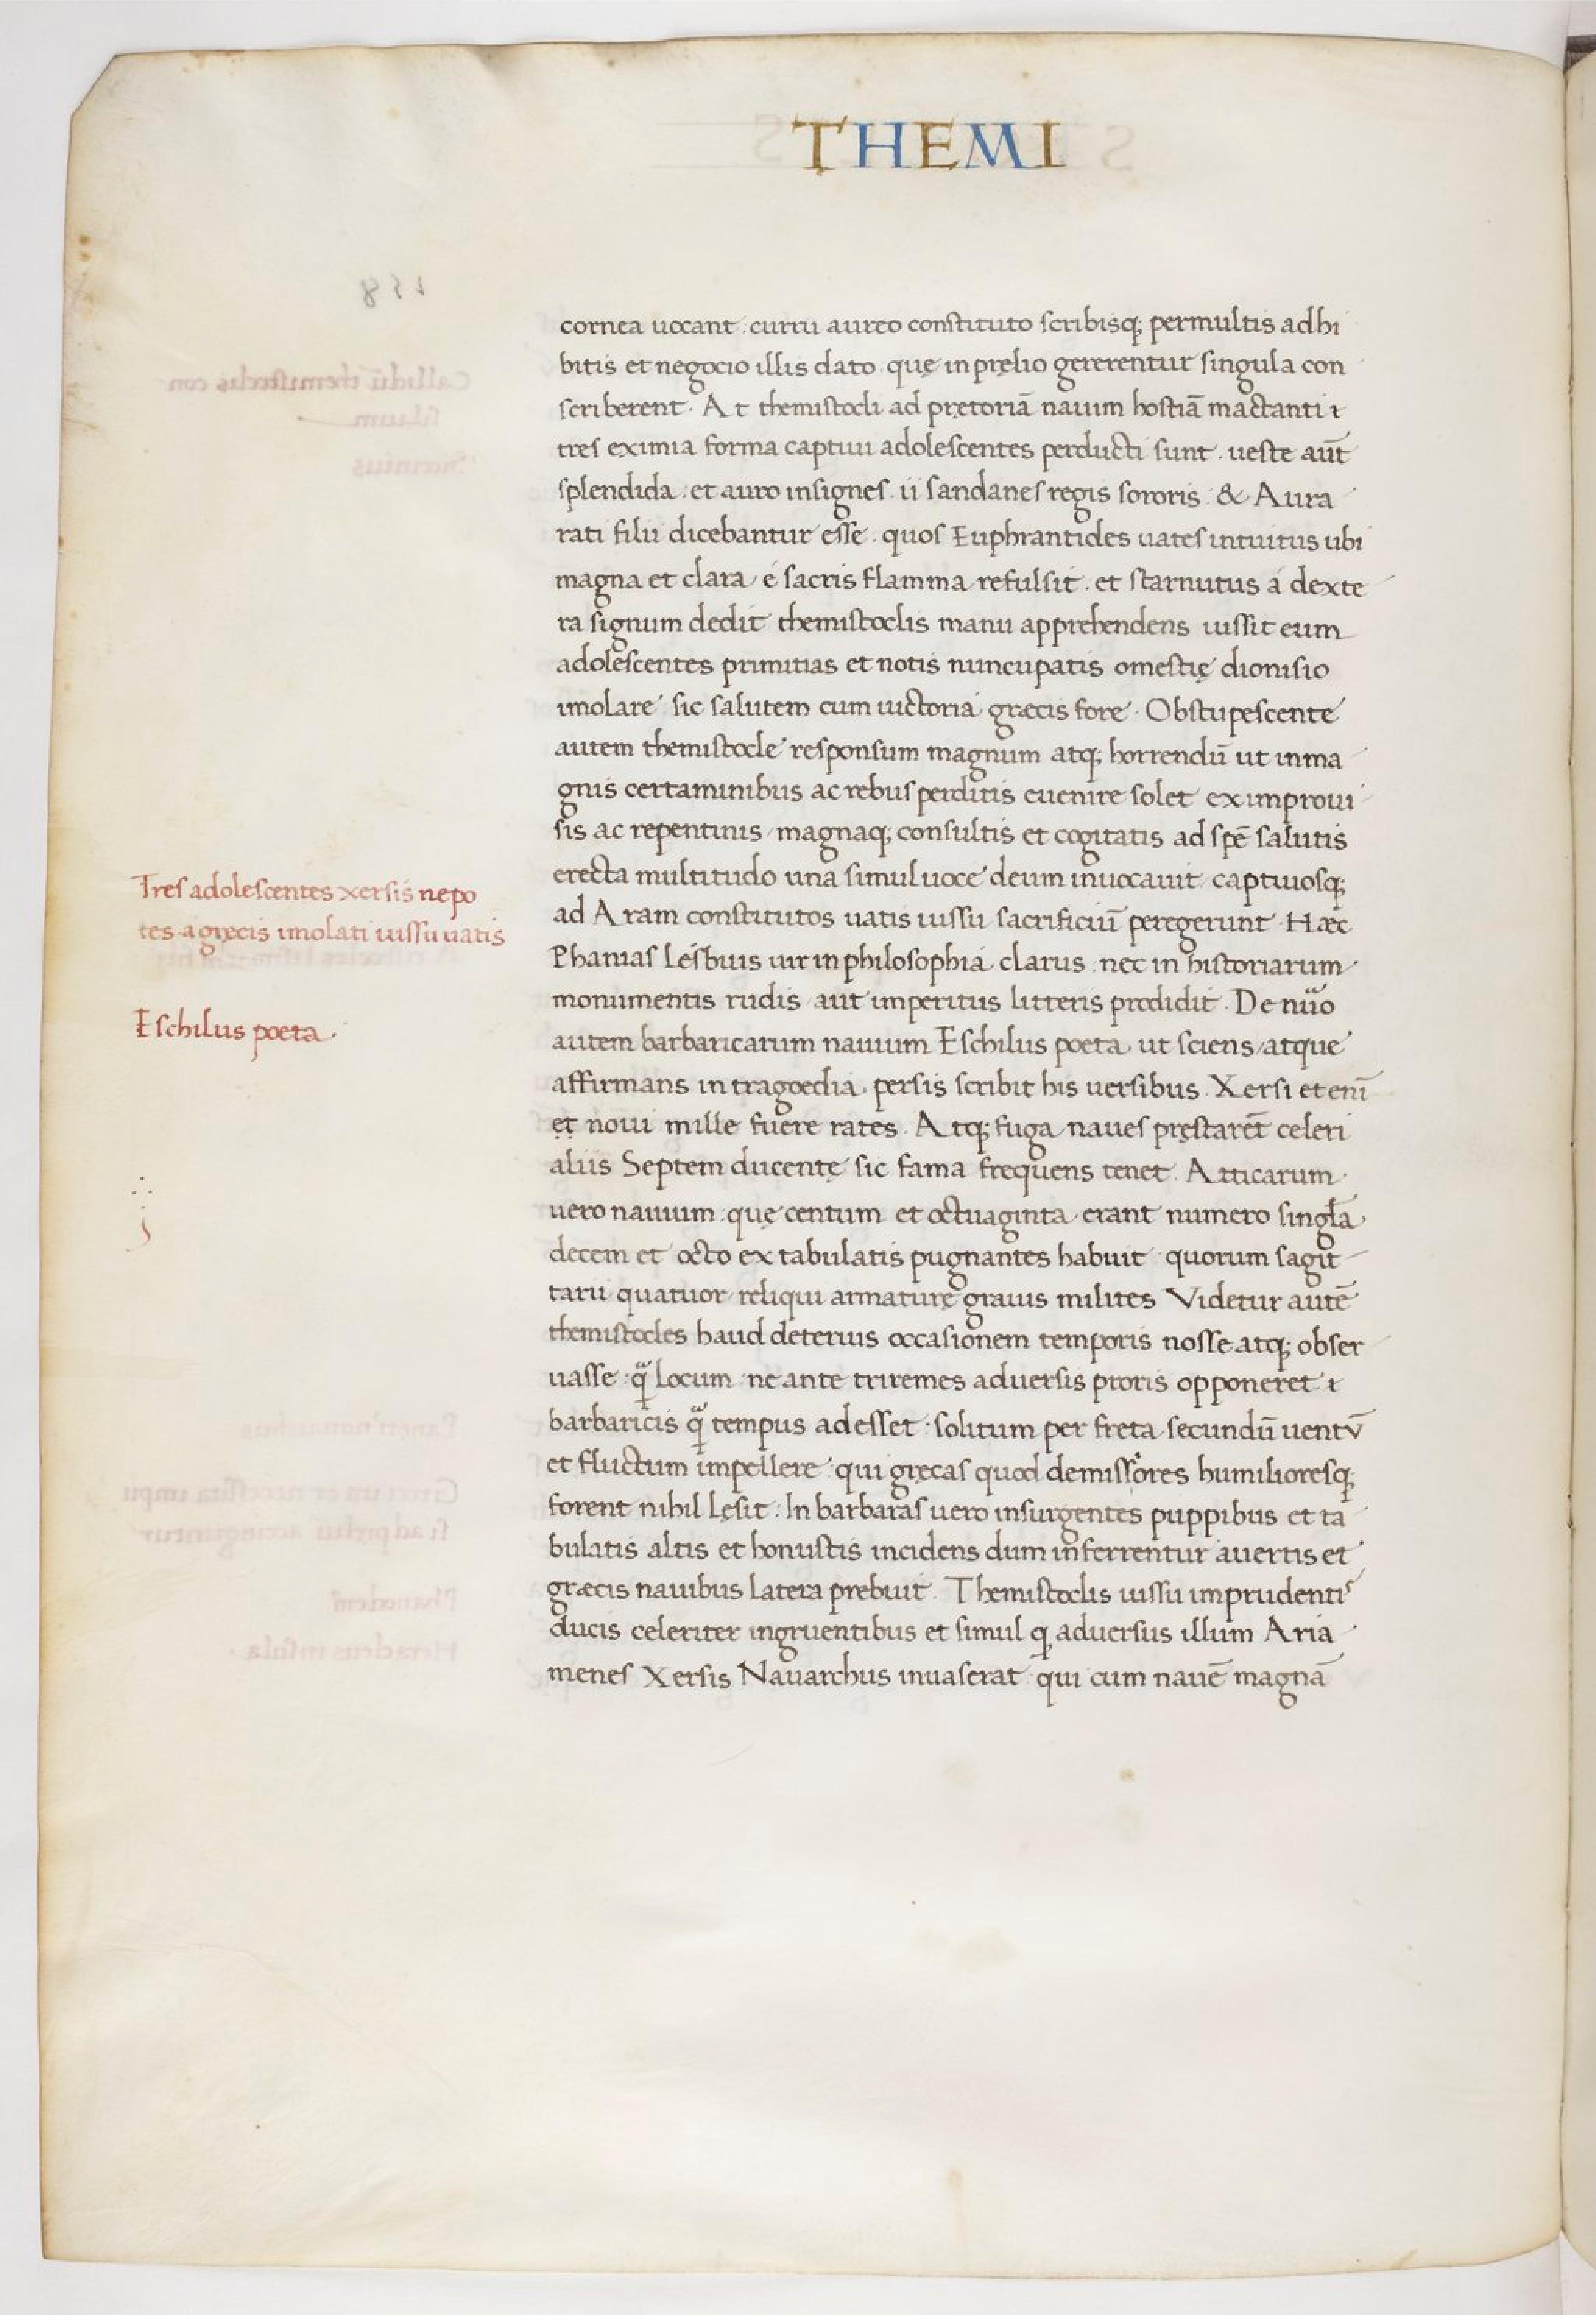 THEMI
cornea uocant. curru aureo constituto scribisq; permultis adhi
bitis et negocio illis dato. quę in pręlio gererentur singula con
scriberent. At themistocli ad pretoriā nauim hostiā mactanti
tres eximia forma captiui adolescentes perducti sunt. ueste aūt
splendida. et auro insignes. ii sandanes regis sororis. & Aura
rati filii dicebantur esse. quos Euphrantides uates intuitus ubi
magna et clara é sacris flamma refulsit. et starnutus á dexte
ra signum dedit themistoclis manu apprehendens iussit eum
adolescentes primitias et notis nuncupatis omestię dionisio
imolare sic salutem cum uictoria græcis fore. Obstupescente
autem themistocle responsum magnum atq; horrendū ut in ma
gnis certaminibus ac rebus perditis euenire solet ex improui
sis ac repentinis magnaq; consultis et cogitatis ad spē salutis
erecta multitudo una simul uoce deum inuocauit captiuosq;
ad Aram constitutos uatis iussu sacrificiū peregerunt. Hæc
Tres adolescentes xersis nepo
tes a gręcis imolati iussu uatis
Phanias Lesbius uir in philosophia clarus nec in historiarum
monumentis rudis aut imperitus litteris prodidit. De nūo
Eschilus poeta.
autem barbaricarum nauium Eschilus poeta ut sciens atque
affirmans in tragoedia persis scribit his uersibus. Xersi et enī
et noui mille fuere rates. Atq; fuga naues pręstarēt celeri
aliis Septem ducentę sic fama frequens tenet. Atticarum
uero nauium quę centum et octuaginta erant numero singła
decem et octo ex tabulatis pugnantes habuit quorum sagit
tarii quatuor reliqui armaturę grauis milites Videtur autē
themistocles haud deterius occasionem temporis nosse atq; obser
uasse q̃ locum ne ante triremes aduersis proris opponeret
barbaricis q̃ tempus adesset solitum per freta secundū uentū
et fluctum impellere qui gręcas quod demissiores humilioresq;
forent nihil lęsit. In barbaras uero insurgentes puppibus et ta
bulatis altis et honustis incidens dum inferrentur auertis et
græcis nauibus latera prebuit. Themistoclis iussu imprudentis
ducis celeriter ingruentibus et simul q aduersus illum Aria
menes Xersis Nauarchus inuaserat qui cum nauē magnā